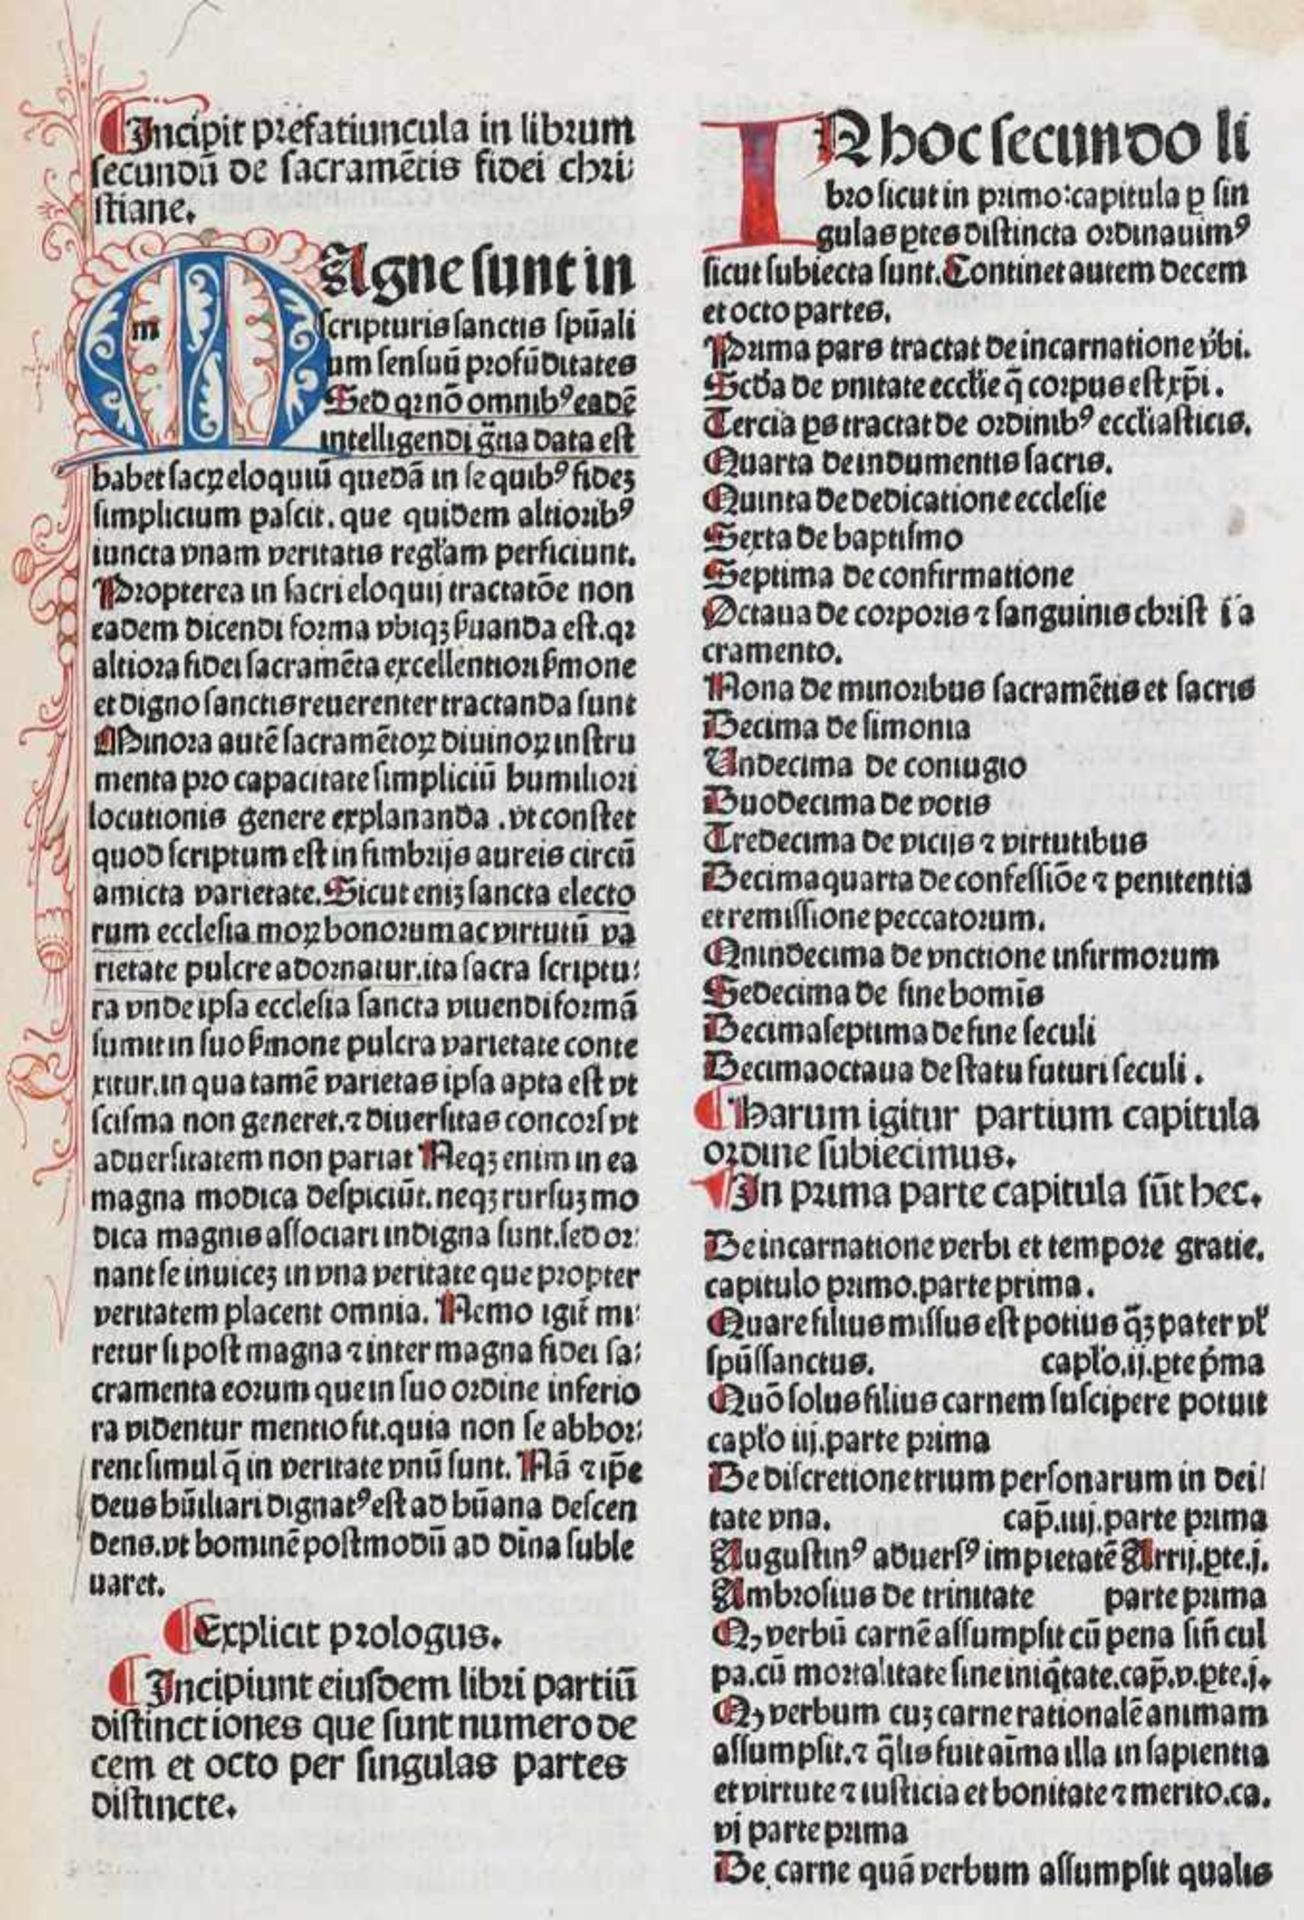 ¶Incipit prefatiuncula in librum
secundū de sacramētis fidei chri:
stiane.
MAgne sunt in
scripturis sanctis spūali
um sensuū profūditates
Sed qꝛ nō omnibꝰ eadē
intelligendi gr̄a data est
habet sacꝝ eloquiū quedā in se quibꝰ fideʒ
simplicium pascit. que quidem altioribꝰ
iuncta vnam veritatis regłam perficiunt.
Propterea in sacri eloquij tractatōe non
eadem dicendi forma vbiqʒ ẜuanda est. qꝛ
altiora fidei sacramēta excellentiori ẜmone
et digno sanctis reuerenter tractanda sunt
Minora autē sacramētoꝝ diuinoꝝ instru
menta pro capacitate simpliciū humiliori
locutionis genere explananda . vt constet
quod scriptum est in fimbrijs aureis circū
amicta varietate. Sicut eniʒ sancta electo
rum ecclesia moꝝ bonorum ac virtutū va
rietate pulcre adornatur. ita sacra scriptu:
ra vnde ipsa ecclesia sancta viuendi formā
sumit in suo ẜmone pulcra varietate conte
ritur. in qua tamē varietas ipsa apta est vt
scisma non generet. ⁊ diuersitas concors vt
aduersitatem non pariat Neqʒ enim in ea
magna modica despiciūt. neqʒ rursuʒ mo
dica magnis associari indigna sunt. sed or:
nant se inuiceʒ in vna veritate que propter
veritatem placent omnia. Nemo igit̄ mi:
retur si post magna ⁊ inter magna fidei sa:
cramenta eorum que in suo ordine inferio
ra videntur mentio fit. quia non se abhor:
rent simul q̄ in veritate vnū sunt. Nā ⁊ ip̄e
deus hūiliari dignatꝰ est ad hūana descen
dens. vt hominē postmodū ad diīna suble
uaret.
¶Explicit prologus.
¶Incipiunt eiusdem libri partiū
distinctiones que sunt numero de
cem et octo per singulas partes
distincte.
IN hoc secundo li
bro sicut in primo: capitula ꝑ sin
gulas ꝑtes distincta ordinauimꝰ
sicut subiecta sunt. Continet autem decem
et octo partes.
Prima pars tractat de incarnatione v̄bi.
Scđa de vnitate eccłie q̄ corpus est xp̄i .
Tercia ꝑs tractat de ordinibꝰ eccłiasticis.
Quarta de indumentis sacris.
Quinta de dedicatione ecclesie
Sexta de baptismo
Septima de confirmatione
Octaua de corporis ⁊ sanguinis christ i sa
cramento.
Nona de minoribus sacramētis et sacris
Decima de simonia
Undecima de coniugio
Duodecima de votis
Tredecima de vicijs ⁊ virtutibus
Decimaquarta de confessiōe ⁊ penitentia
et remissione peccatorum.
Quindecima de vnctione infirmorum
Sedecima de fine homīs
Decimaseptima de fine seculi
Decimaoctaua de statu futuri seculi .
¶Harum igitur partium capitula
ordine subiecimus.
¶In prima parte capitula sūt hec.
De incarnatione verbi et tempore gratie.
capitulo primo. parte prima .
Quare filius missus est potius q̄ʒ pater vł
spūssanctus. capło. ij. ꝑte p̄ma
Quō solus filius carnem suscipere potuit
capło iij. parte prima
De discretione trium personarum in dei/
tate vna. cap̄. iiij. parte prima
Augustinꝰ aduersꝰ impietatē Arrij. ꝑte. j.
Ambrosius de trinitate parte prima
Qꝫ verbū carnē assumpsit cū pena sin̄ cul
pa. cū mortalitate sine iniq̄tate. cap̄. v. ꝑte. j.
Qꝫ verbum cuʒ carne rationalē animam
assumpsit. ⁊ q̄lis fuit aīma illa in sapientia
et virtute ⁊ iusticia et bonitate ⁊ merito. ca.
vj parte prima
De carne quā verbum assumpsit qualis